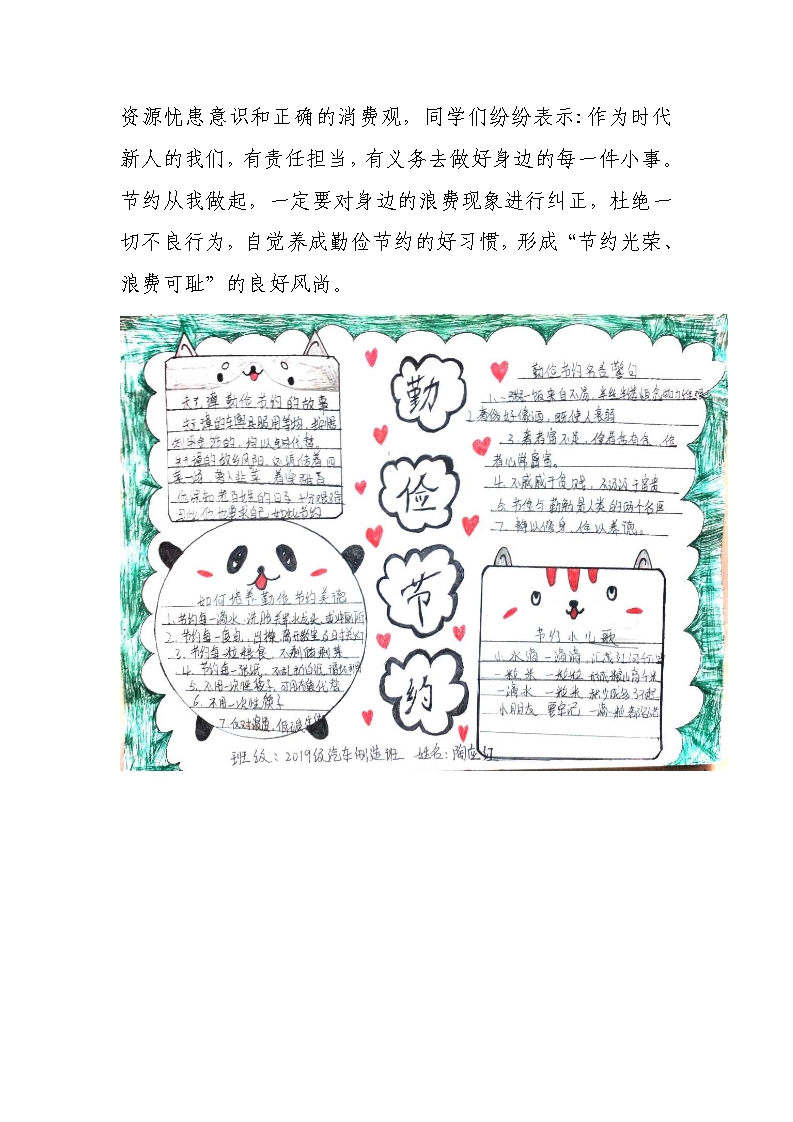 资源忧患意识和正确的消费观，同学们纷纷表示：作为时代
新人的我们，有责任担当，有义务去做好身边的每一件小事。
节约从我做起，一定要对身边的浪费现象进行纠正，杜绝一
切不良行为，自觉养成勤俭节约的好习惯，形成“节约光荣、
浪费可耻”的良好风尚。
勤
俭
节
约
朱元璋勤俭节约的故事
朱元璋的故乡凤阳，还流传着四
菜一汤
勤俭节约名言警句
2.奢侈好像酒，既使人衰弱
3.奢者富不足，俭者贫有余，俭
者心常富
4.不戚戚于贫贱，不汲汲于富贵
6.节俭与勤勉是人类的两个名医
7.静以修身，俭以养德。
如何培养勤俭节约美德
1.节约每一滴水，洗脸
2.节约每一度电，
3.节约每一粒粮食，不剩饭剩菜
4.节约每一张纸，
5.不用一次性筷子，可用
6.不用一次性筷子
节约小儿歌
小水滴 一滴滴，汇成江河
一粒米 一粒粒
一滴水 一粒米
小朋友 要牢记
班级：2019级汽车制造班 姓名：陶